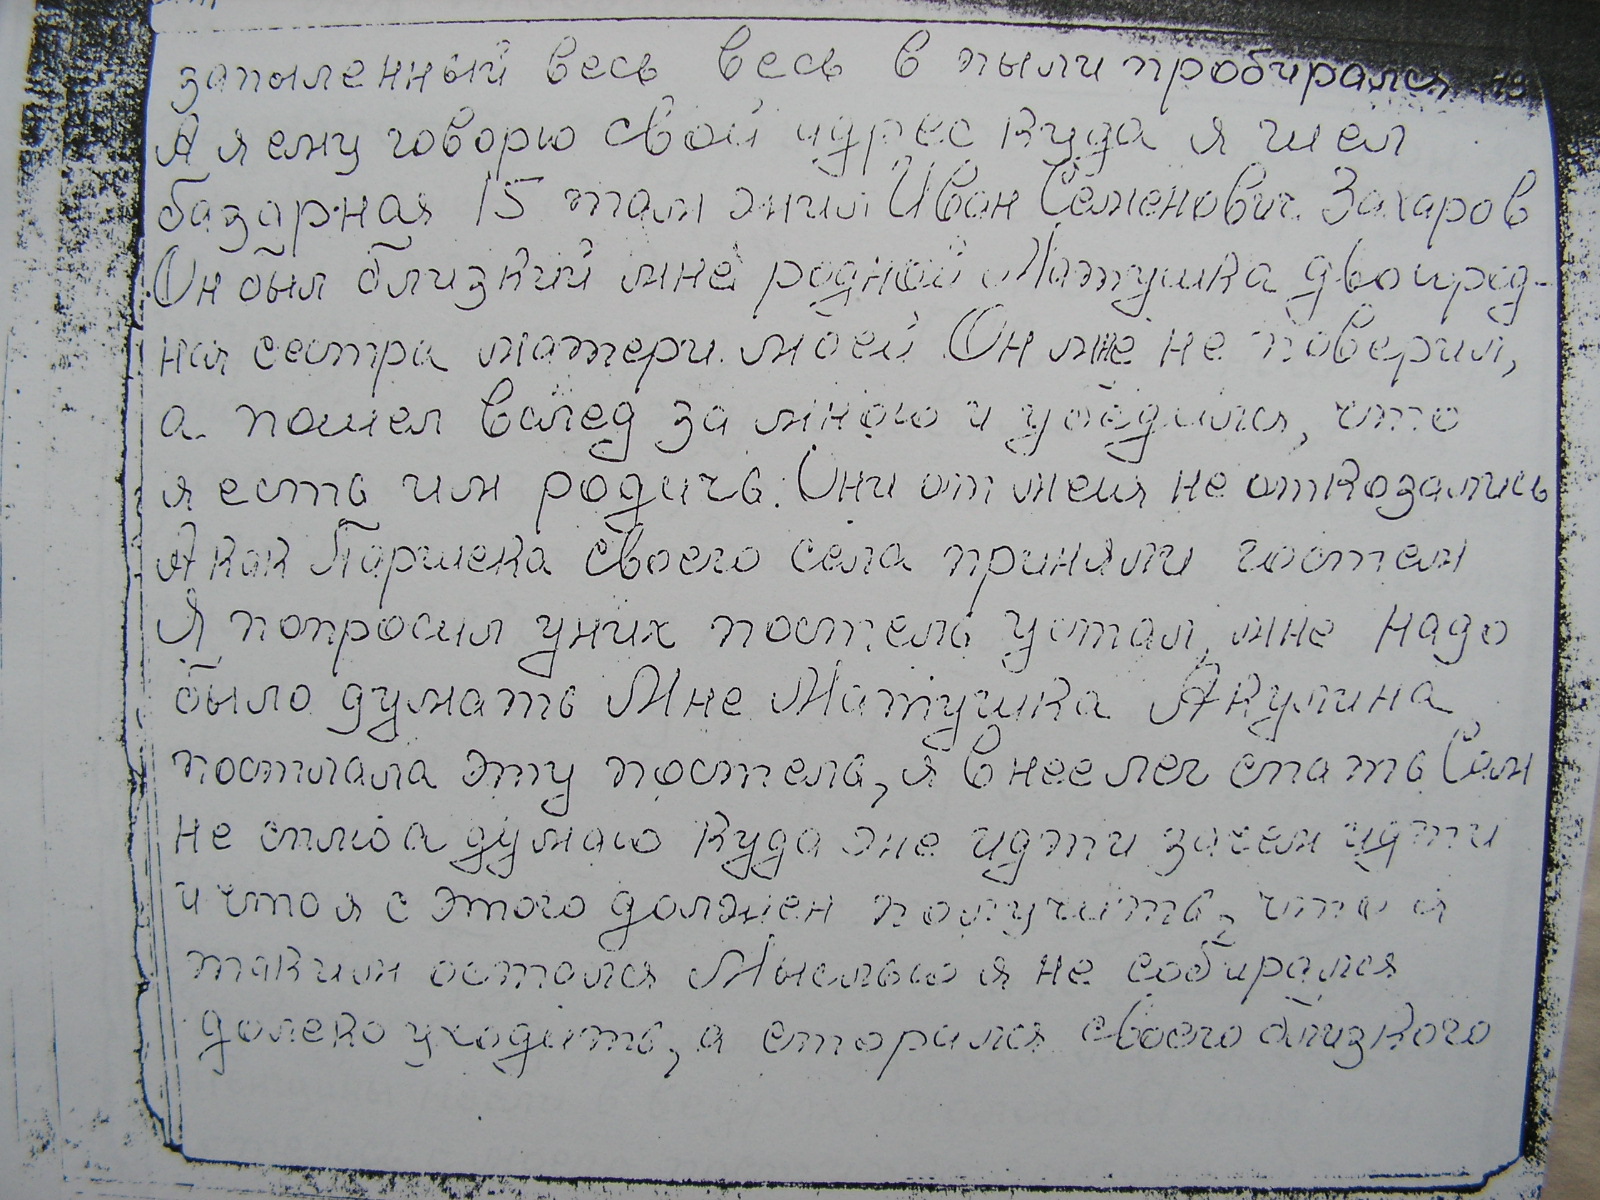 запыленный весь весь в пыли пробирался на
А я ему говорю свой идрес куда я шел
базарная 15 там жил Иван Семенович Захаров
Он был близкий мне родной Матушка двоиред-
ная сестра матери моей Он мне не поверил,
а пошел вслед за мною и убедился, что
я есть им родичь. Они от меня не отказались
А как Паршека своего села приняли гостем
Я попросил у них постель устал, мне надо
было думать Мне Матушка Акулина
постлала эту постель, я в нее лег спать Сам
не сплю а думаю куда же идти зачем идти
и что я с этого должен получить, что я
таким остался Мыслью я не собирался
долеко уходить, а старался своего близкого